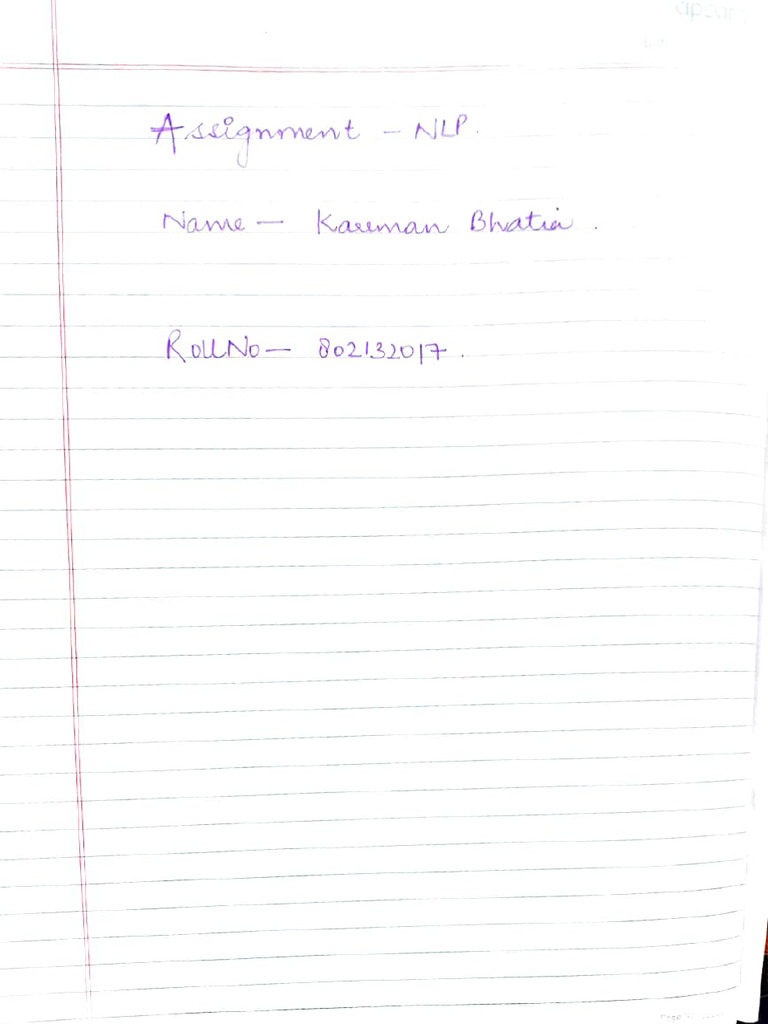 Assignment - NLP.
Name - Karman Bhatia.
RollNo - 802132017.